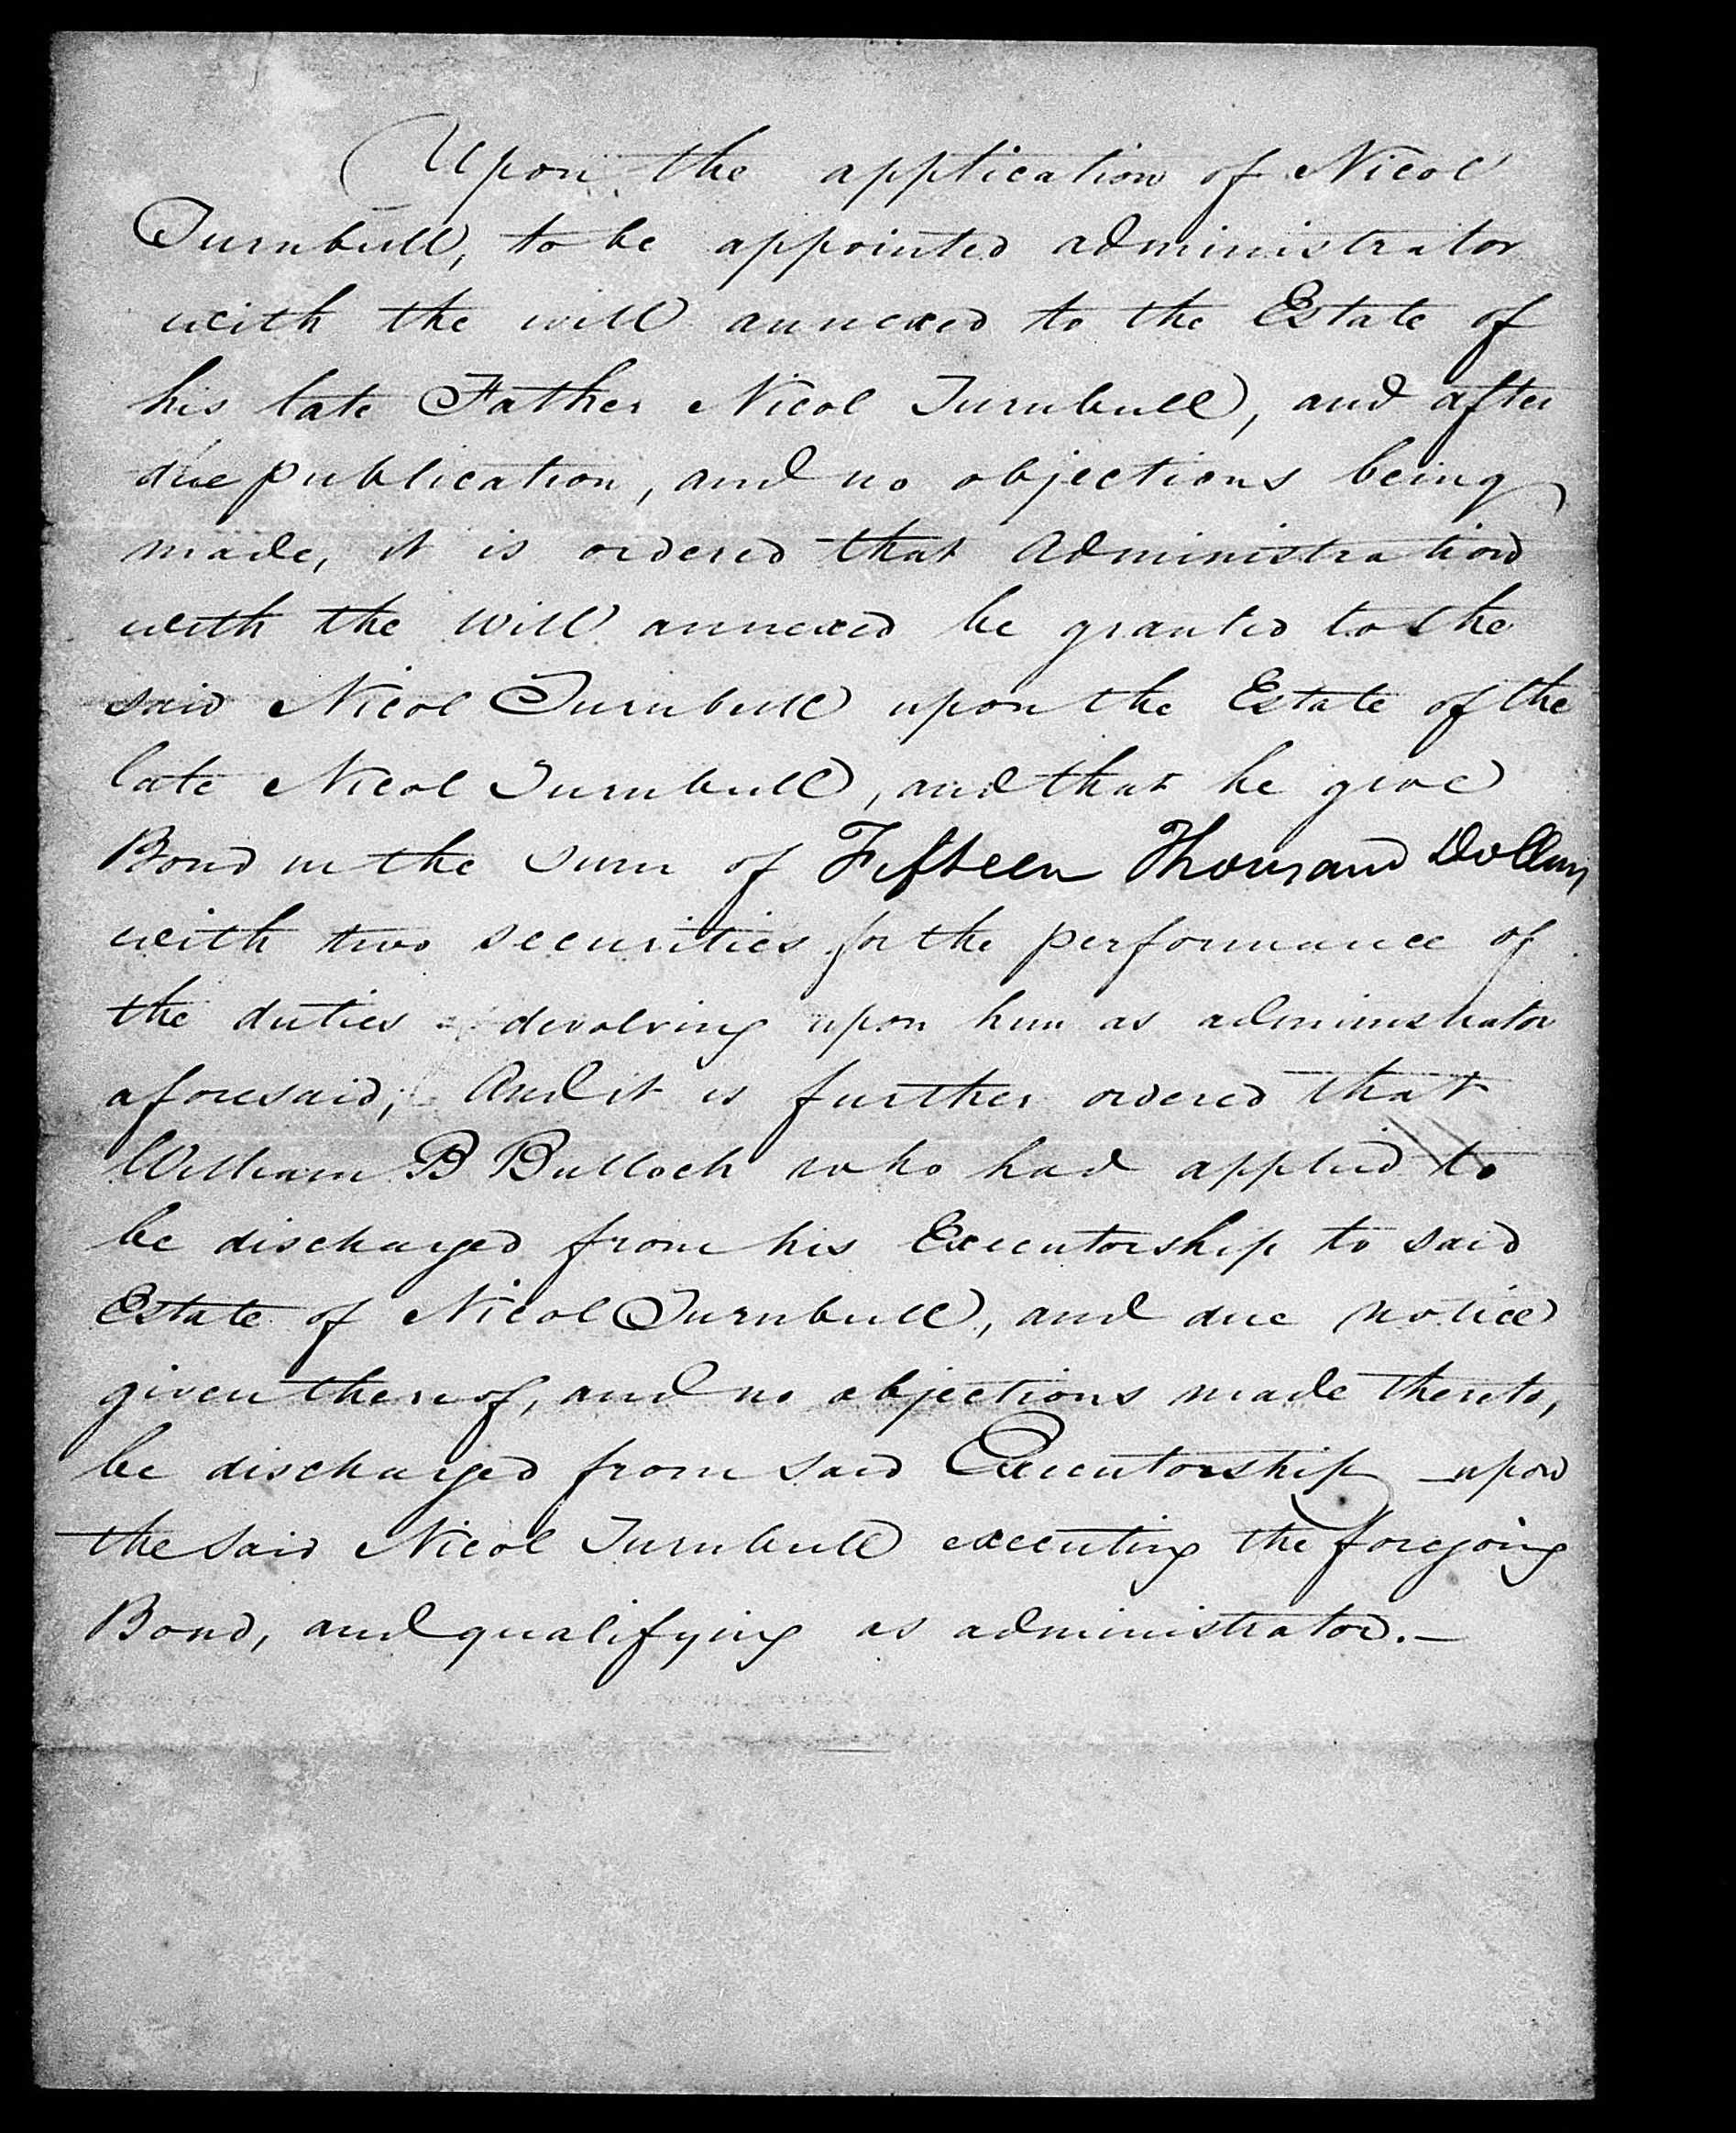 Upon the application of Nicol
Turnbull, to be appointed administrator
with the will annexed to the Estate of
his late Father Nicol Turnbull, and after
due publication, and no objections being
made, it is ordered that Administration
with the will annexed be granted to the
said Nicol Turnbull upon the Estate of the
late Nicol Turnbull, and that he give
Bond in the sum of Fifteen Thousand Dollars
with two securities for the performance of
the duties devolving upon him as administrator
aforesaid; And it is further ordered that
William B Bulloch who had applied to
be discharged from his Executorship to said
Estate of Nicol Turnbull, and due notice
given thereof, and no objections made thereto,
be discharged from said Executorship upon
the said Nicol Turnbull executing the foregoing
Bond, and qualifying as administrator.—